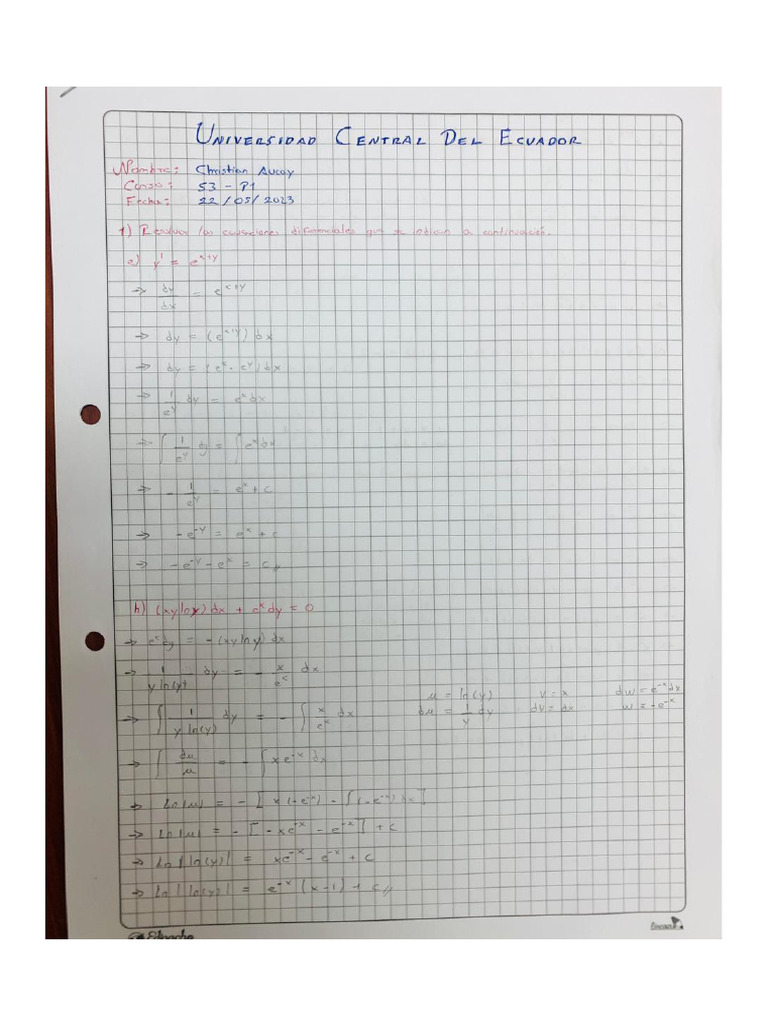 UNIVERSIDAD CENTRAL DEL ECUADOR
Nombre: Christian Aucay
Curso: S3 - P1
Fecha: 22/05/2023
1) Resolver las ecuaciones diferenciales que se indican a continuación.
a) y' = e^{x+y}
→ dy/dx = e^{x+y}
→ dy = (e^{x+y}) dx
→ dy = (e^x · e^y) dx
→ 1/e^y dy = e^x dx
→ ∫ 1/e^y dy = ∫ e^x dx
→ - 1/e^y = e^x + c
→ -e^{-y} = e^x + c
→ -e^{-y} - e^x = c//
b) (xy ln y) dx + e^x dy = 0
→ e^x dy = -(xy ln y) dx
→ 1/(y ln(y)) dy = - x/e^x dx
→ ∫ 1/(y ln(y)) dy = - ∫ x/e^x dx
u = ln(y) v = x dw = e^{-x} dx
du = 1/y dy dv = dx w = -e^{-x}
→ ∫ du/u = - ∫ x e^{-x} dx
→ Ln|u| = - [x(-e^{-x}) - ∫(-e^{-x}) dx]
→ Ln|u| = - [-xe^{-x} - e^{-x}] + c
→ Ln|ln(y)| = xe^{-x} - e^{-x} + c
→ Ln|ln(y)| = e^{-x} (x-1) + c//
Estrache
lineas